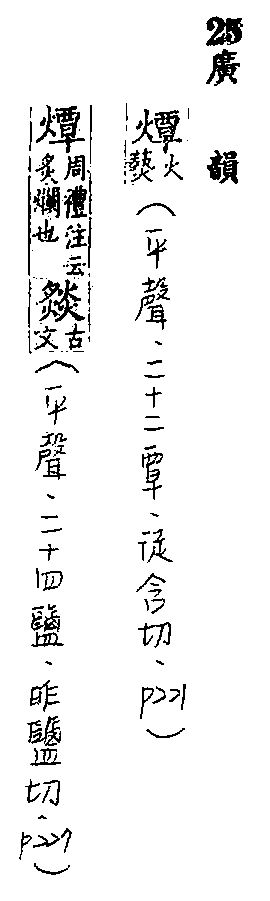 25廣韻
燂火爇(平聲、二十二覃、徒含切、p221)
燂周禮注云炙爛也燅古文(平聲、二十四鹽、昨鹽切、p227)